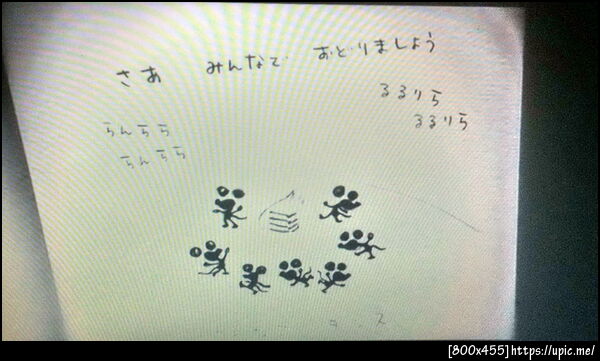 さあ みんなで おどりましょう
るるりら
るるりら
らんらら
らんらら
[800x455]https://upic.me/